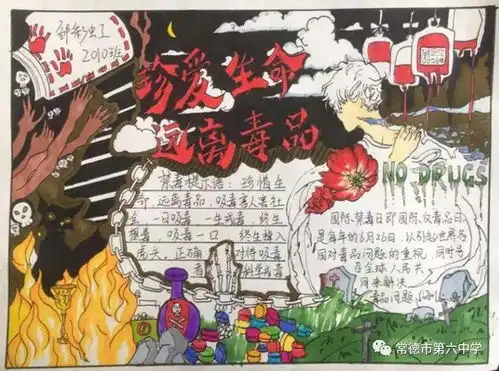 2010班
珍爱生命
远离毒品
禁毒提示语：珍惜生
命 远离毒品，吸毒害人黑社
会 一日吸毒 一生戒毒，终生
想毒 吸毒一口 终生掉入
虎口，正确对待吸毒
者 科学戒毒
NO DRUGS
国际禁毒日即国际反毒品日，
是每年的6月26日，以引起世界各
国对毒品问题的重视，同时号
召全球人民共
同来解决
毒品问题
常德市第六中学